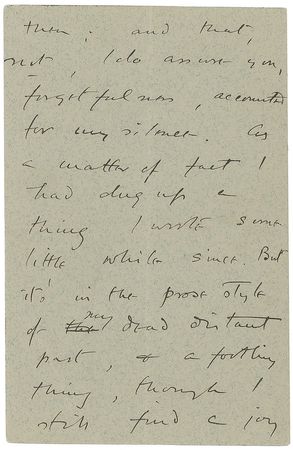 then; and that,
not, I do assure you,
forgetfulness, accounted
for my silence. As
a matter of fact I
had dug up a
thing I wrote some
little while since. But
it's in the prose style
of the my dead distant
past, & a footling
thing, though I
still find a joy